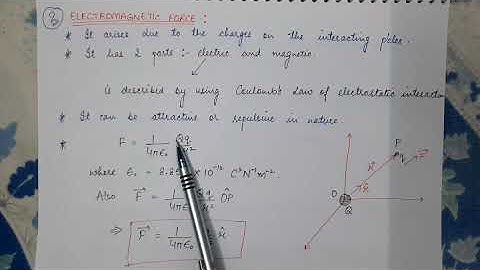 ② ELECTROMAGNETIC FORCE :
* It arises due to the charges on the interacting p'cles.
* It has 2 parts :- electric and magnetic.
is described by using Coulomb's Law of electrostatic interaction
* It can be attractive or repulsive in nature.
* F = 1/4πε₀
where ε₀ = 8.85 × 10⁻¹² C²N⁻¹m⁻²
Also F⃗ = 1/4πε₀ Qq/r² OP̂
⇒ F⃗ = 1/4πε₀ r̂
P
q
F⃗
r⃗
r̂
O
Q